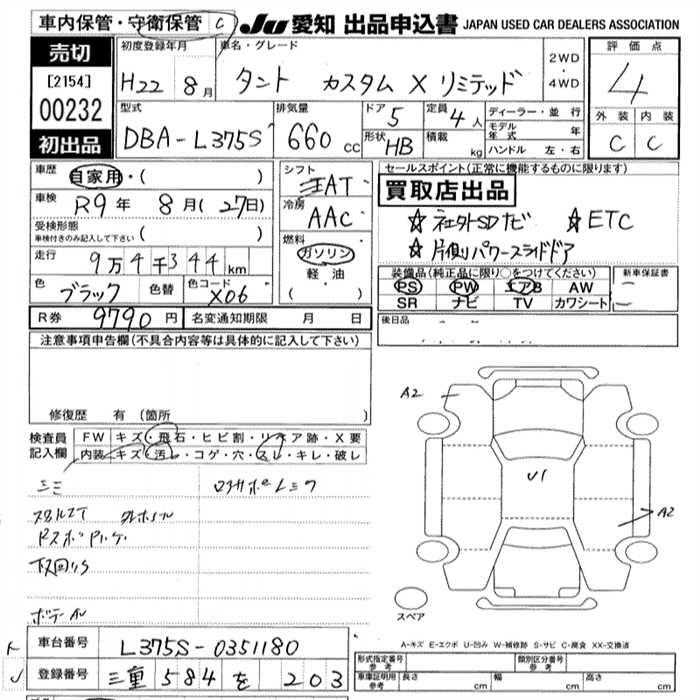 車内保管・守衛保管 C JU 愛知 出品申込書 JAPAN USED CAR DEALERS ASSOCIATION
売切
[2154]
00232
初出品
初度登録年月 車名・グレード
H22 8月 タント カスタム X リミテッド
2WD
・
4WD
評価点
4
外装 内装
C C
型式 排気量 ドア 定員 ディーラー・並行
DBA-L375S 660cc 5 4人
形状 HB 積載 kg
モデル年式 年
ハンドル 左・右
車歴 自家用・( )
車検 R9年 8月(27日)
受検形態
車検付きのみ記入して下さい ( )
走行 9万4千344km
色 ブラック 色替 色コード X06
シフト AT
冷房 AAC
燃料 ガソリン
軽油
( ・ )
セールスポイント(正常に機能するものに限ります)
買取店出品
☆社外SDナビ ☆ETC
☆片側パワースライドドア
装備品(純正品に限り○をつけてください) 新車保証書
PS PW エアB AW
SR ナビ TV カワシート
R券 9790円 名変通知期限 月 日
後日品
注意事項申告欄(不具合内容等は具体的に記入して下さい)
修復歴 有 (箇所
検査員 FW キズ・飛石・ヒビ割・リペア跡・X要
記入欄 内装 キズ・汚レ・コゲ・穴・スレ・キレ・破レ
A2
U1
A2
下回りS
スペア
A-キズ E-エクボ U-凹み W-補修跡 S-サビ C-腐食 XX-交換済
車台番号 L375S-0351180
登録番号 三重 584 を 203
形式指定番号 参考 類別区分番号 参考
車庫証明用 参考 長さ cm 幅 cm 高さ cm